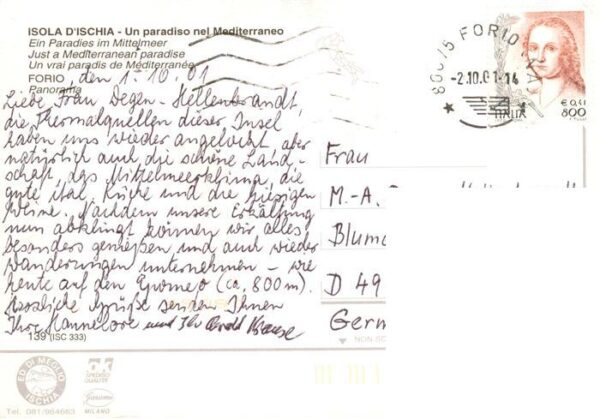 ISOLA D'ISCHIA - Un paradiso nel Mediterraneo
Ein Paradies im Mittelmeer
Just a Mediterranean paradise
Un vrai paradis de Méditerranée
FORIO, den 1.10.01
Panorama
Liebe Frau Degen-Hellenbrandt,
die Thermalquellen dieser Insel
haben uns wieder angelockt, aber
natürlich auch die schöne Land-
schaft, das Mittelmeerklima, die
gute ital. Küche und die hiesigen
Weine. Nachdem unsere Erkältung
nun abklingt können wir alles
besonders genießen und auch wieder
Wanderungen unternehmen - wie
heute auf den Epomeo (ca. 800 m).
Herzliche Grüße senden Ihnen
Ihre Hannelore und Ihr Krause
139 (ISC 333)
80075 FORIO NA
-2.10.01-14
ITALIA
€ 0,41
800
Frau
M.-A.
Blum
D 49
Germ
NON SC
ED. DI MEGLIO
ISCHIA
Tel. 081/984663
MILANO